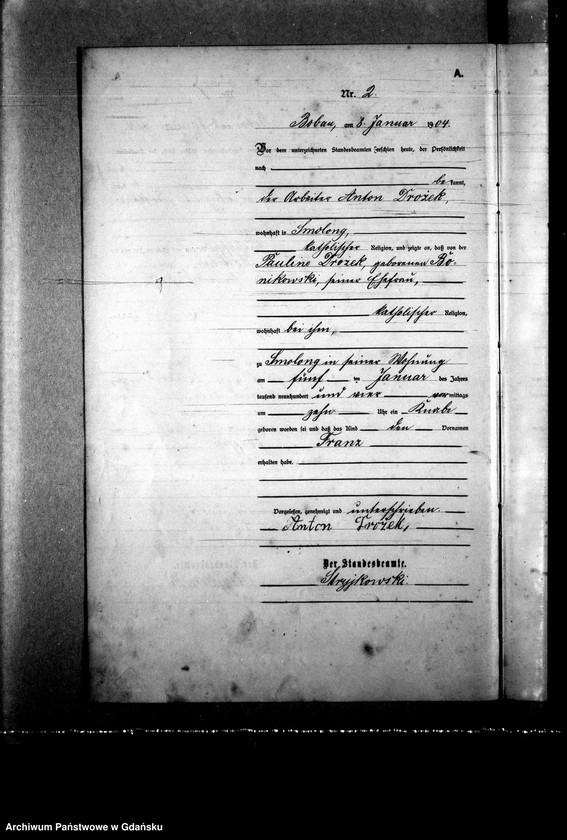 A.
Nr. 2.
Bobau, am 8. Januar 1904.
Vor dem unterzeichneten Standesbeamten erschien heute, der Persönlichkeit
nach
be kannt,
der Arbeiter Anton Drożek,
wohnhaft in Smolong,
katholischer Religion, und zeigte an, daß von der
Pauline Drozek, geborenen Bo-
nikowski, seiner Ehefrau,
katholischer Religion,
wohnhaft bei ihm,
zu Smolong in seiner Wohnung
am fünf ten Januar des Jahres
tausend neunhundert und vier vor mittags
um zehn Uhr ein Knabe
geboren worden sei und daß das Kind den Vornamen
Franz
erhalten habe.
Vorgelesen, genehmigt und unterschrieben.
Anton Drożek,
Der Standesbeamte.
Stryjkowski.
Archiwum Państwowe w Gdańsku